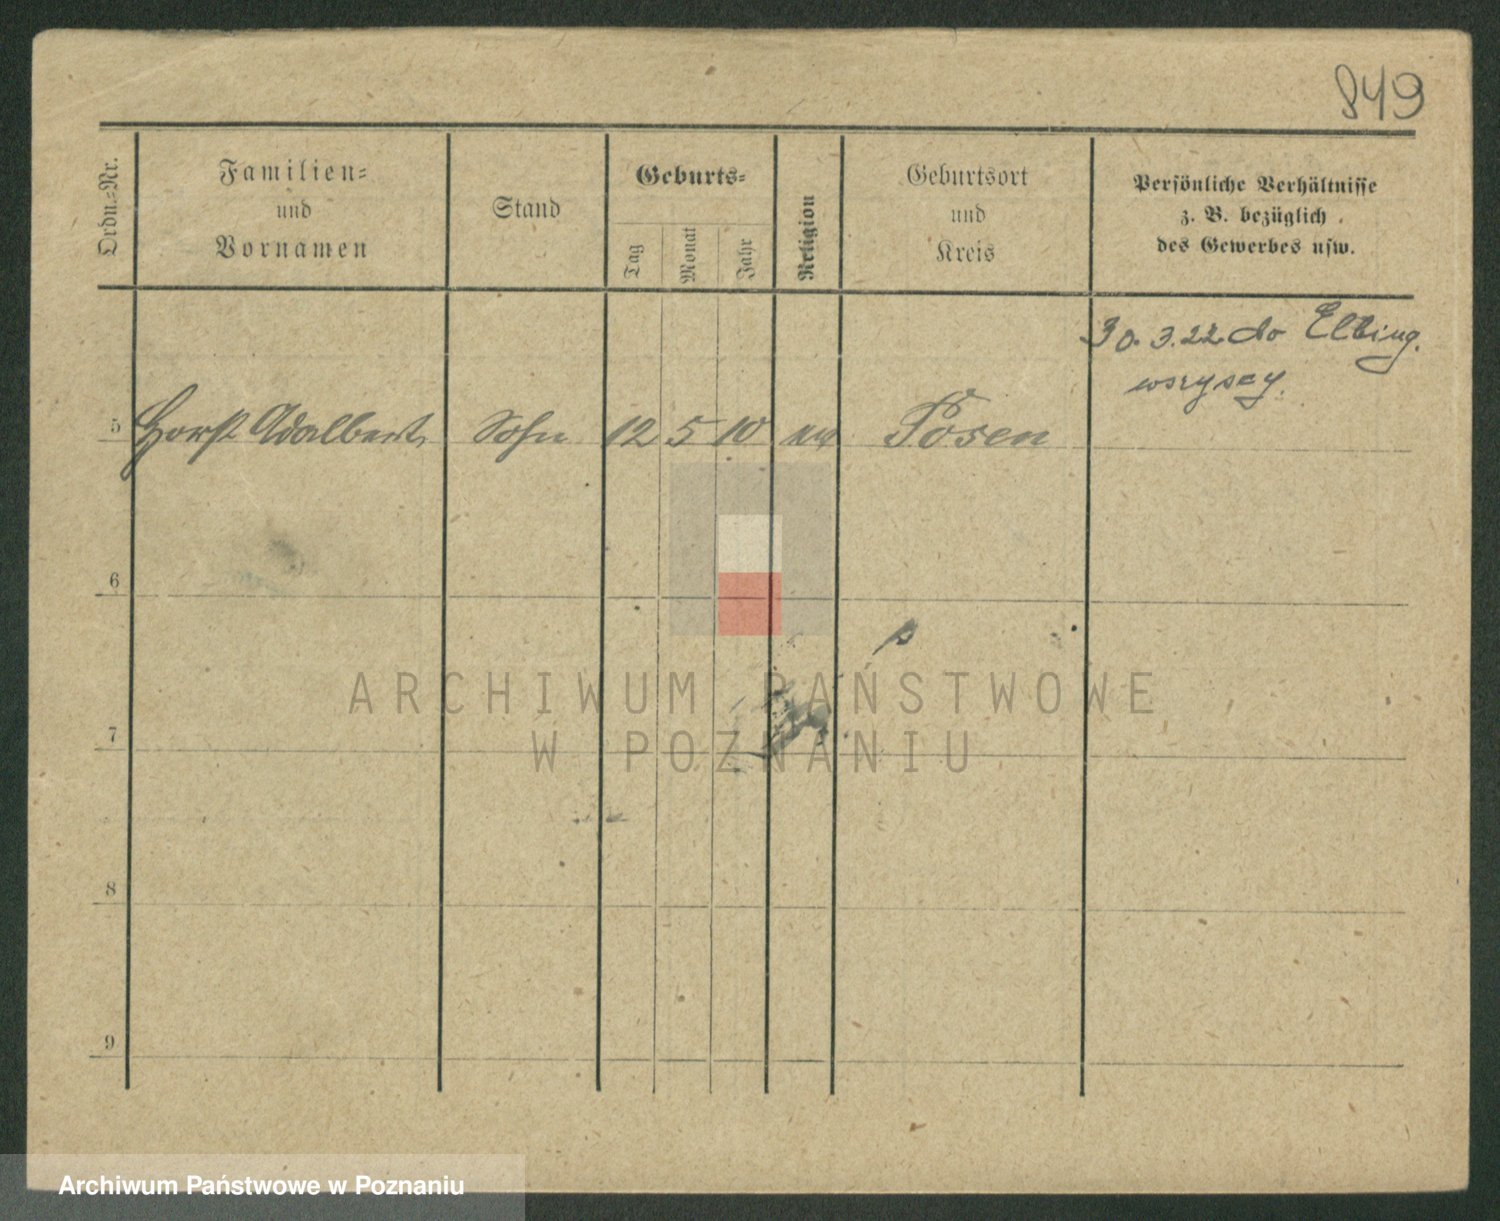 849
Ordn.-Nr.
Familien-
und
Vornamen
Stand
Geburts-
Tag
Monat
Jahr
Religion
Geburtsort
und
Kreis
Persönliche Verhältnisse
z. B. bezüglich
des Gewerbes usw.
30.3.22 do Elbing.
wszyscy.
5 Horst Adalbert Sohn 12 5 10 Posen
6
ARCHIWUM PAŃSTWOWE
7
W POZNANIU
8
9
Archiwum Państwowe w Poznaniu